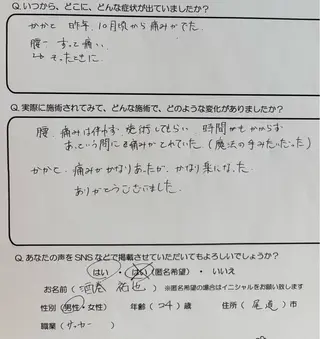 Q.いつから、どこに、どんな症状が出ていましたか?
かかと 昨年、10月頃から痛みがでた。
腰→ ずっと痛い、
↳ そったときに
Q.実際に施術されてみて、どんな施術で、どのような変化がありましたか?
腰、痛みは伴わず、施術してもらい 時間がもかからず
あっという間に痛みがとれていた(魔法の手みたいだった)
かかと、痛みがかなりあったが、かなり楽になった
ありがとうございました。
Q.あなたの声をSNSなどで掲載させていただいてもよろしいでしょうか?
はい ・ はい(匿名希望) ・ いいえ
お名前( 祐也 )※匿名希望の場合はイニシャルをお願い致します
性別(男性・女性) 年齢(24)歳 住所(尾道)市
職業(サッカー )